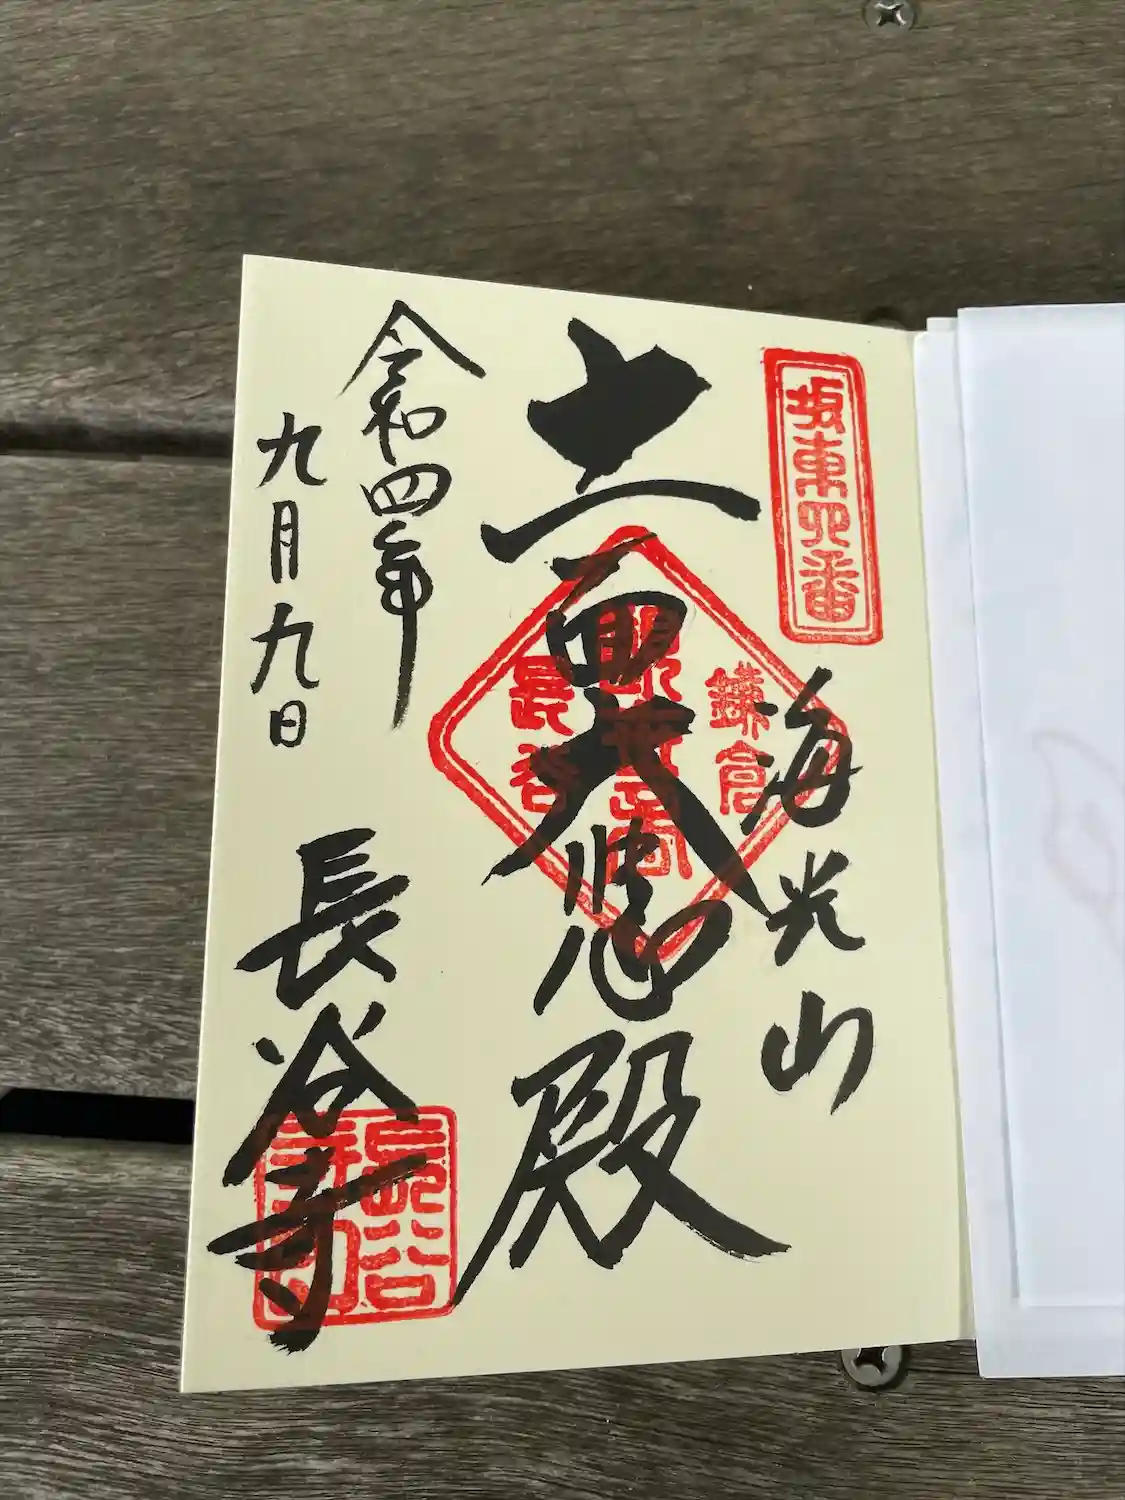 坂東四番
海光山
十一面大悲殿
鎌倉
観世音
長谷
令和四年
九月九日
長谷寺
長谷寺印